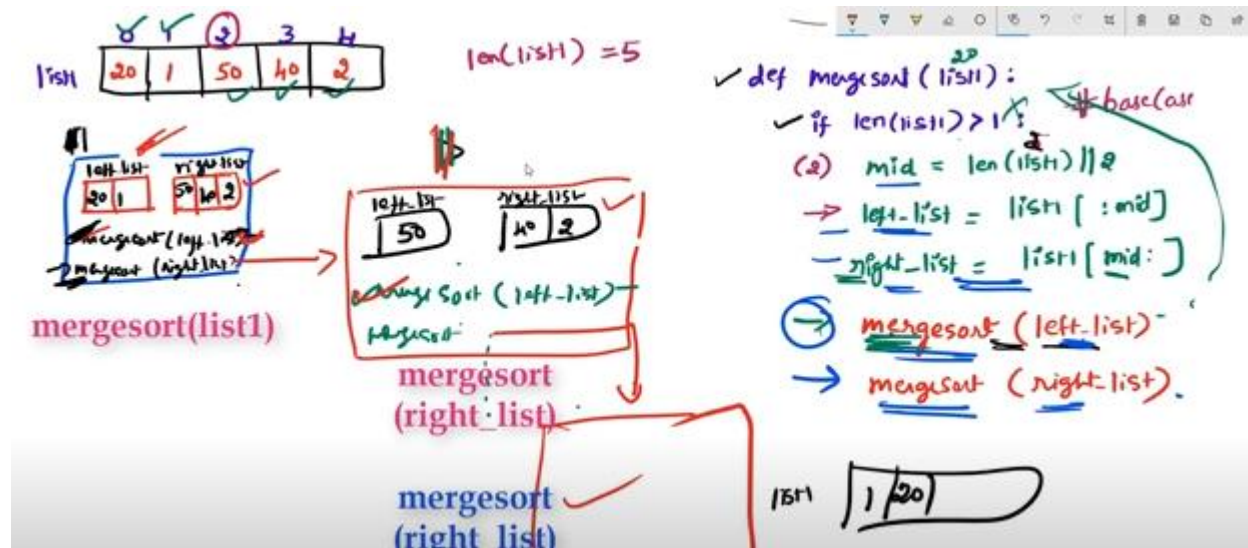 0 1 2 3 4
list1 20 1 50 40 2
len(list1) = 5
left_list right_list
20 1 50 40 2
mergesort (left_list)
mergesort (right_list)
mergesort(list1)
left_list right_list
50 40 2
mergesort (left_list)
mergesort
mergesort
(right_list)
mergesort
(right_list)
20
def mergesort (list1) :
# basecase
if len(list1) > 1 :
(2) mid = len(list1)//2
left_list = list1 [ :mid]
right_list = list1 [mid: ]
mergesort (left_list)
mergesort (right_list).
list1 1 20